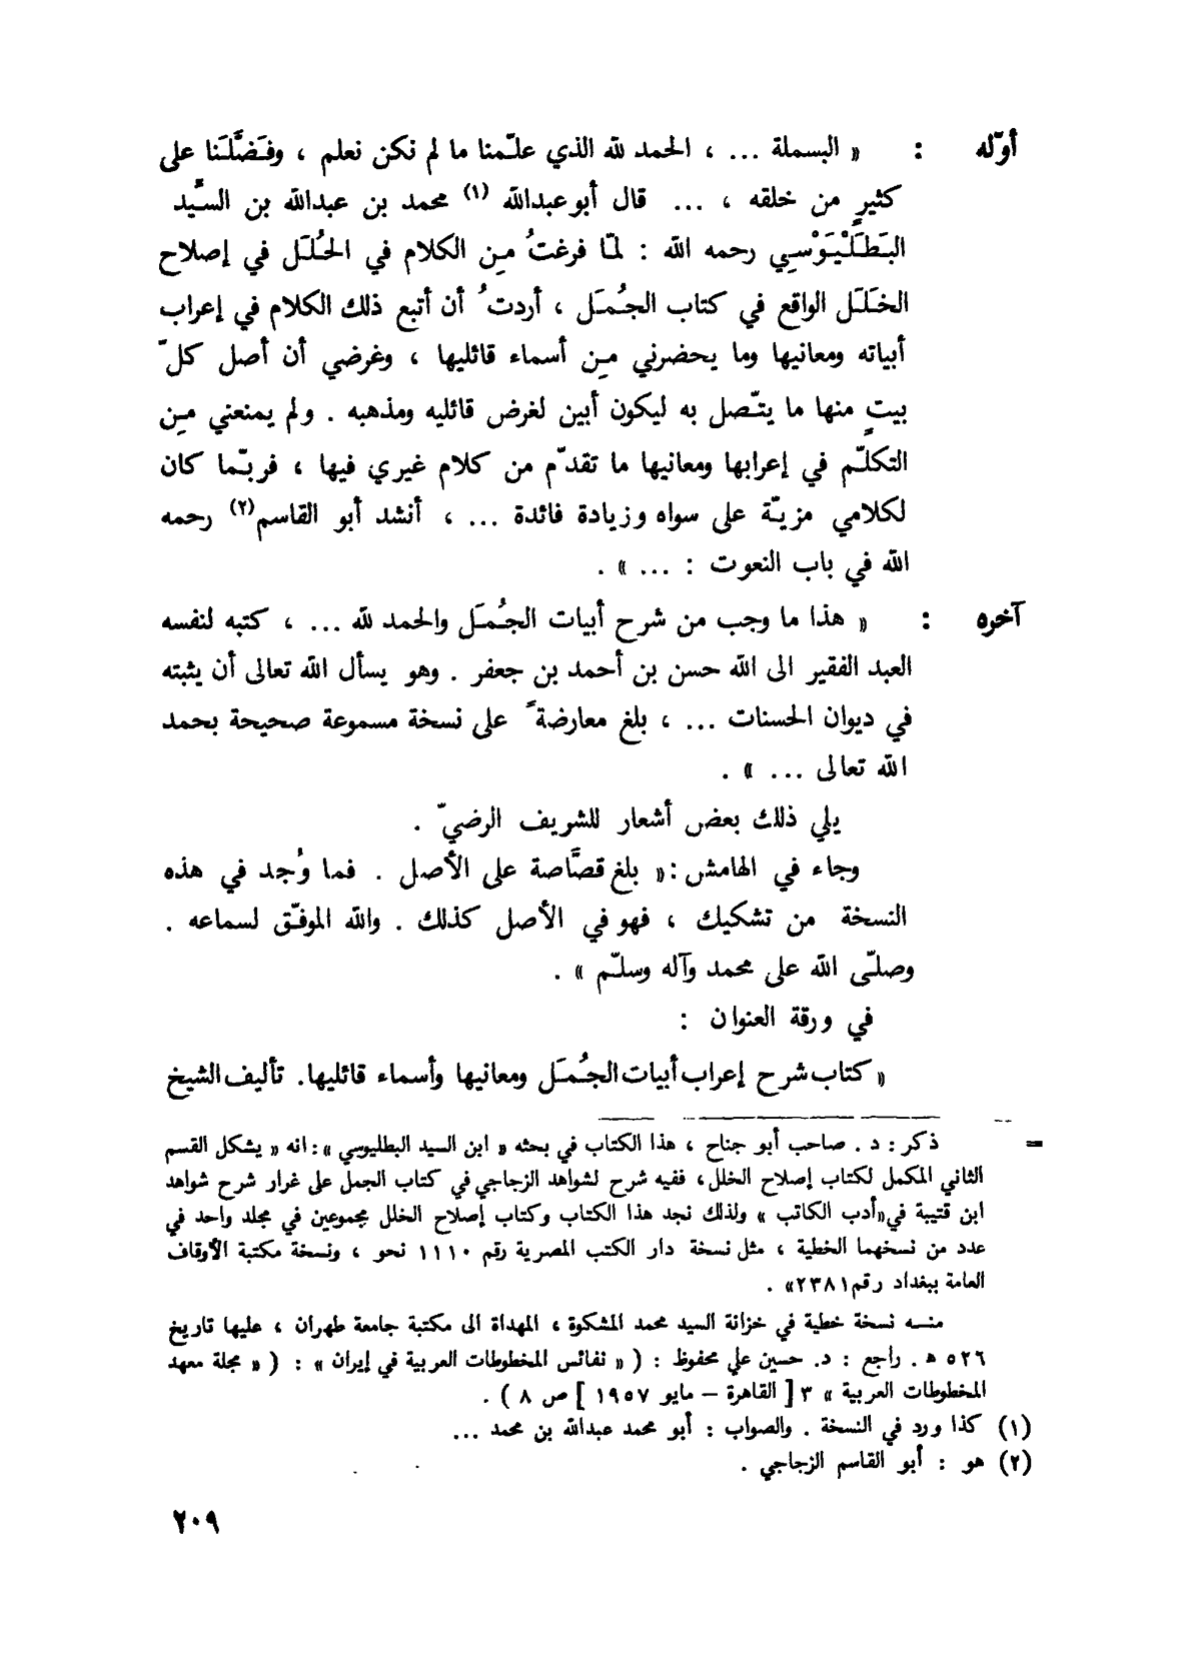 أوّله : « البسملة ... ، الحمد لله الذي علّمنا ما لم نكن نعلم ، وفَضَّلَنا على
كثيرٍ من خلقه ، ... قال أبو عبدالله (١) محمد بن عبدالله بن السِّيد
البَطَلْيَوْسِي رحمه الله : لمّا فرغتُ مِن الكلام في الحُلَل في إصلاح
الخَلَل الواقع في كتاب الجُمَل ، أردتُ أن أتبع ذلك الكلام في إعراب
أبياته ومعانيها وما يحضرني مِن أسماء قائليها ، وغرضي أن أصل كلّ
بيتٍ منها ما يتّصل به ليكون أبين لغرض قائليه ومذهبه . ولم يمنعني مِن
التكلّم في إعرابها ومعانيها ما تقدّم من كلام غيري فيها ، فربّما كان
لكلامي مزيّة على سواه وزيادة فائدة ... ، أنشد أبو القاسم(٢) رحمه
الله في باب النعوت : ... » .
آخره : « هذا ما وجب من شرح أبيات الجُمَل والحمد لله ... ، كتبه لنفسه
العبد الفقير الى الله حسن بن أحمد بن جعفر . وهو يسأل الله تعالى أن يثبته
في ديوان الحسنات ... ، بلغ معارضةً على نسخة مسموعة صحيحة بحمد
الله تعالى ... » .
يلي ذلك بعض أشعار للشريف الرضيّ .
وجاء في الهامش :« بلغ قصَّاصة على الأصل . فما وُجد في هذه
النسخة من تشكيك ، فهو في الأصل كذلك . والله الموفّق لسماعه .
وصلّى الله على محمد وآله وسلّم » .
في ورقة العنوان :
« كتاب شرح إعراب أبيات الجُمَل ومعانيها وأسماء قائليها. تأليف الشيخ
= ذكر : د . صاحب أبو جناح ، هذا الكتاب في بحثه « ابن السيد البطليوسي »: انه « يشكل القسم
الثاني المكمل لكتاب إصلاح الخلل، ففيه شرح لشواهد الزجاجي في كتاب الجمل على غرار شرح شواهد
ابن قتيبة في«أدب الكاتب » ولذلك نجد هذا الكتاب وكتاب إصلاح الخلل مجموعين في مجلد واحد في
عدد من نسخهما الخطية ، مثل نسخة دار الكتب المصرية رقم ١١١٠ نحو ، ونسخة مكتبة الأوقاف
العامة ببغداد رقم ٢٣٨١» .
منـه نسخة خطية في خزانة السيد محمد المشكوة ، المهداة الى مكتبة جامعة طهران ، عليها تاريخ
٥٢٦ هـ . راجع : د. حسين علي محفوظ : ( « نفائس المخطوطات العربية في إيران » : ( « مجلة معهد
المخطوطات العربية » ٣ [ القاهرة – مايو ١٩٥٧ ] ص ٨ ) .
(١) كذا ورد في النسخة . والصواب : أبو محمد عبدالله بن محمد ...
(٢) هو : أبو القاسم الزجاجي .
٢٠٩